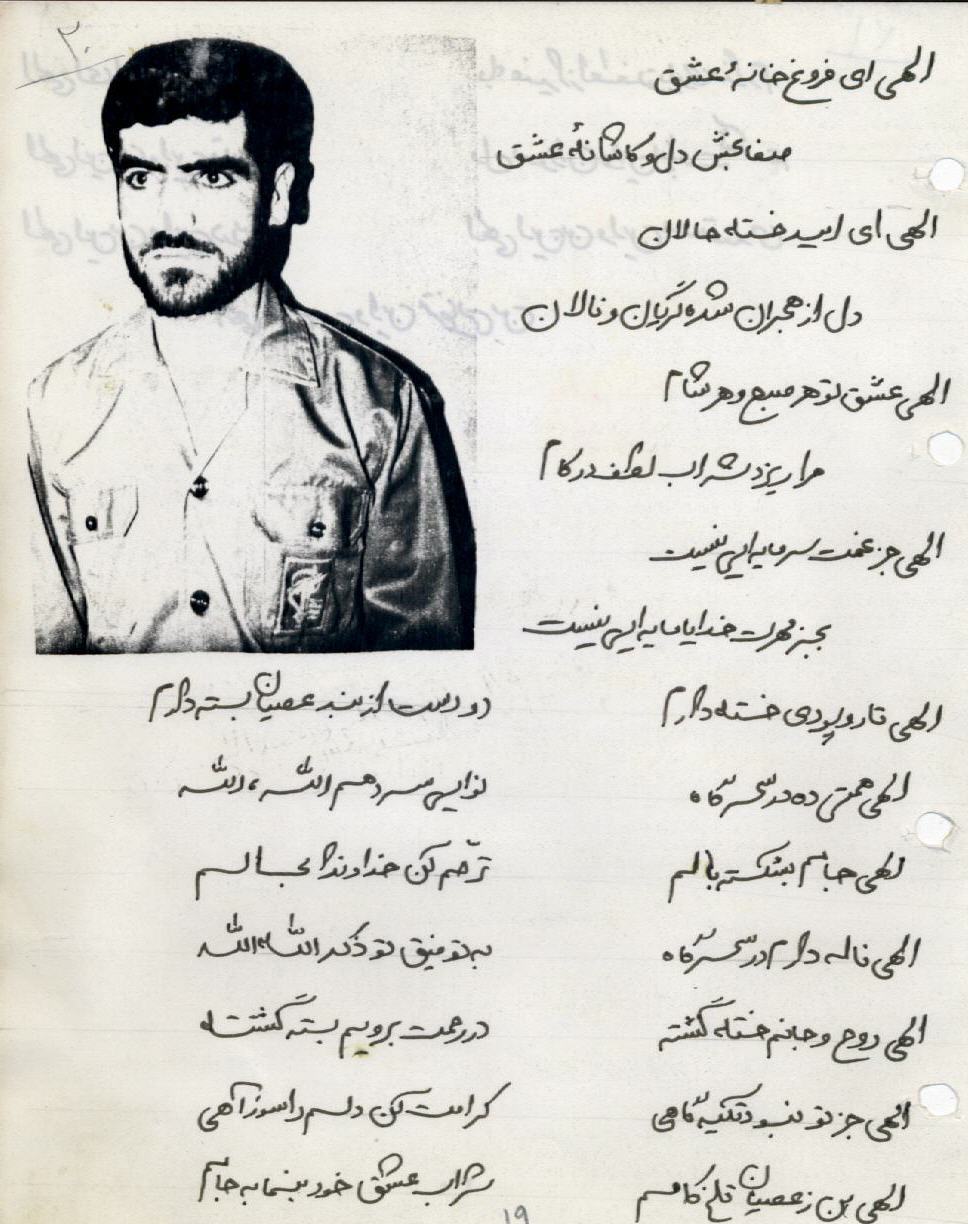 ۲۰
الهی ای فروغ خانهٔ عشق
صفابخش دل و کاشانهٔ عشق
الهی ای امید خسته حالان
دل از هجران شده گریان و نالان
الهی عشق تو هر صبح و هر شام
مرا ریزد شراب لطف در کام
الهی جز غمت سرمایه ایی نیست
بجز مهرت خدایا مایه ایی نیست
الهی تار و پودی خسته دارم دو دست از بند عصیان بسته دارم
الهی همتی ده در سحرگاه نوایی سر دهم الله ، الله
الهی بشکسته بالم ترحّم کن خداوندا بحالم
الهی ناله دارم در سحرگاه به توفیق تو ذکر الله الله
الهی روح و جانم خسته گشته در رحمت برویم بسته گشته
الهی جز تو نبود تکیه گاهی کرامت کن دلم را سوز آهی
الهی من ز عصیان تلخ کامم شراب عشق خود بنما به جامم
19